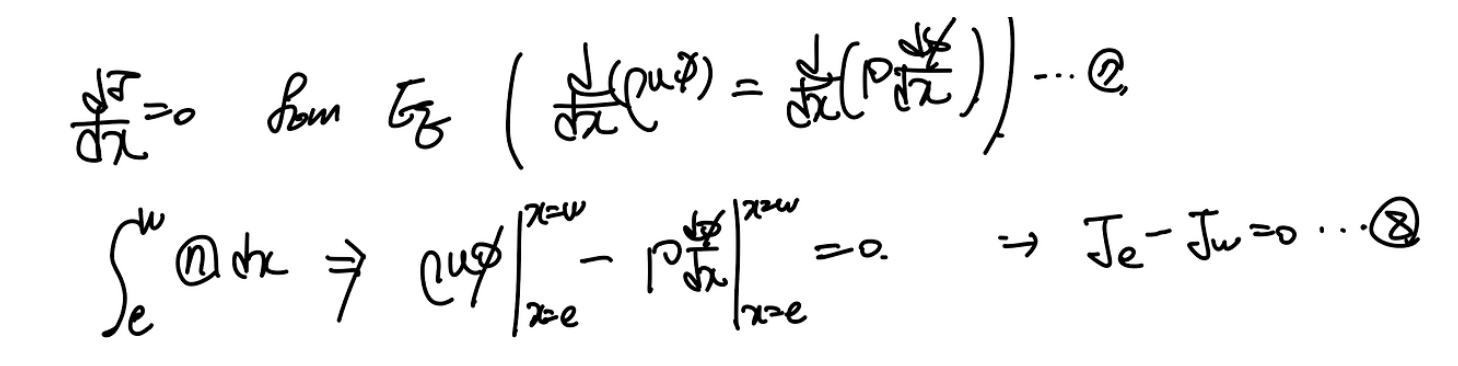 dJ/dx = 0 from Eq ( d/dx (ρuφ) = d/dx (Γ dφ/dx) ) ... ⑦
∫_e^w ⑦ dx ⇒ ρuφ |_{x=e}^{x=w} − Γ dφ/dx |_{x=e}^{x=w} = 0. → J_e − J_w = 0 ... ⑧